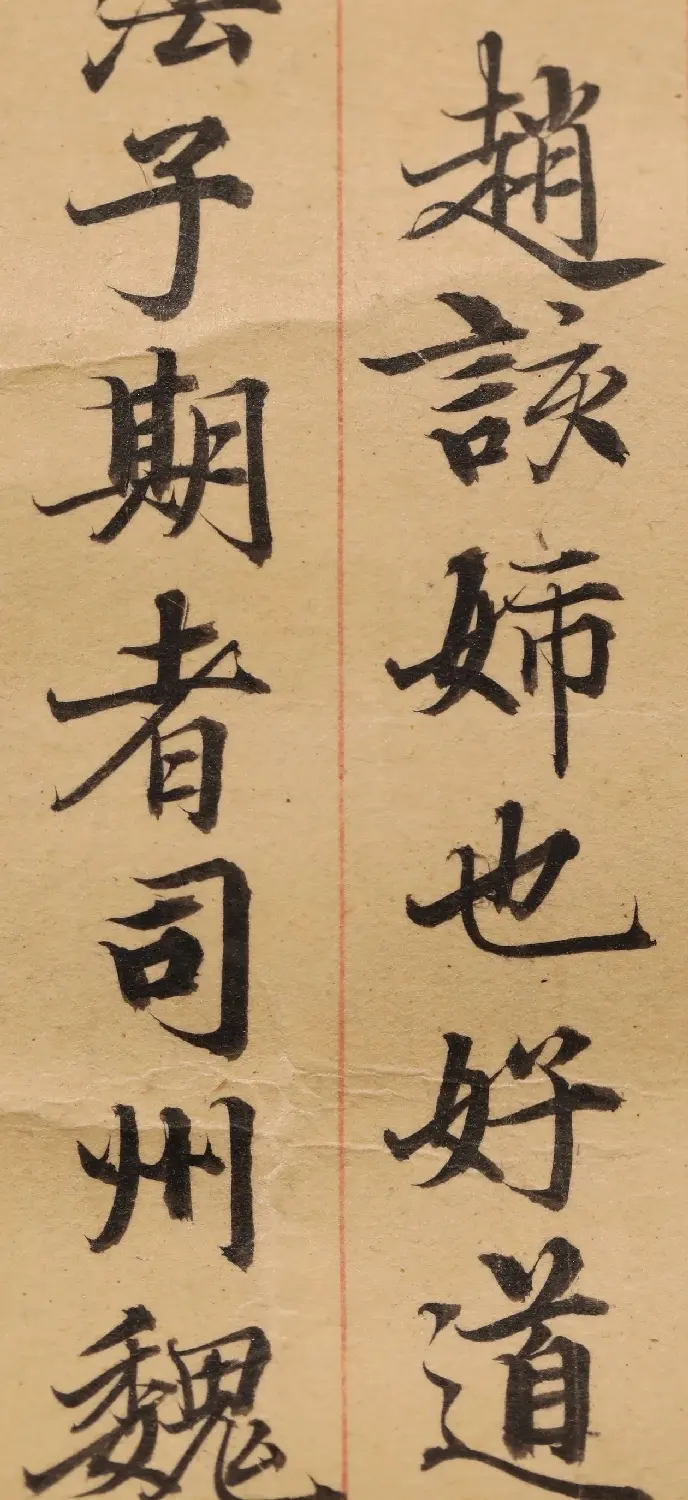 趙該姉也好道
法子期者司州魏